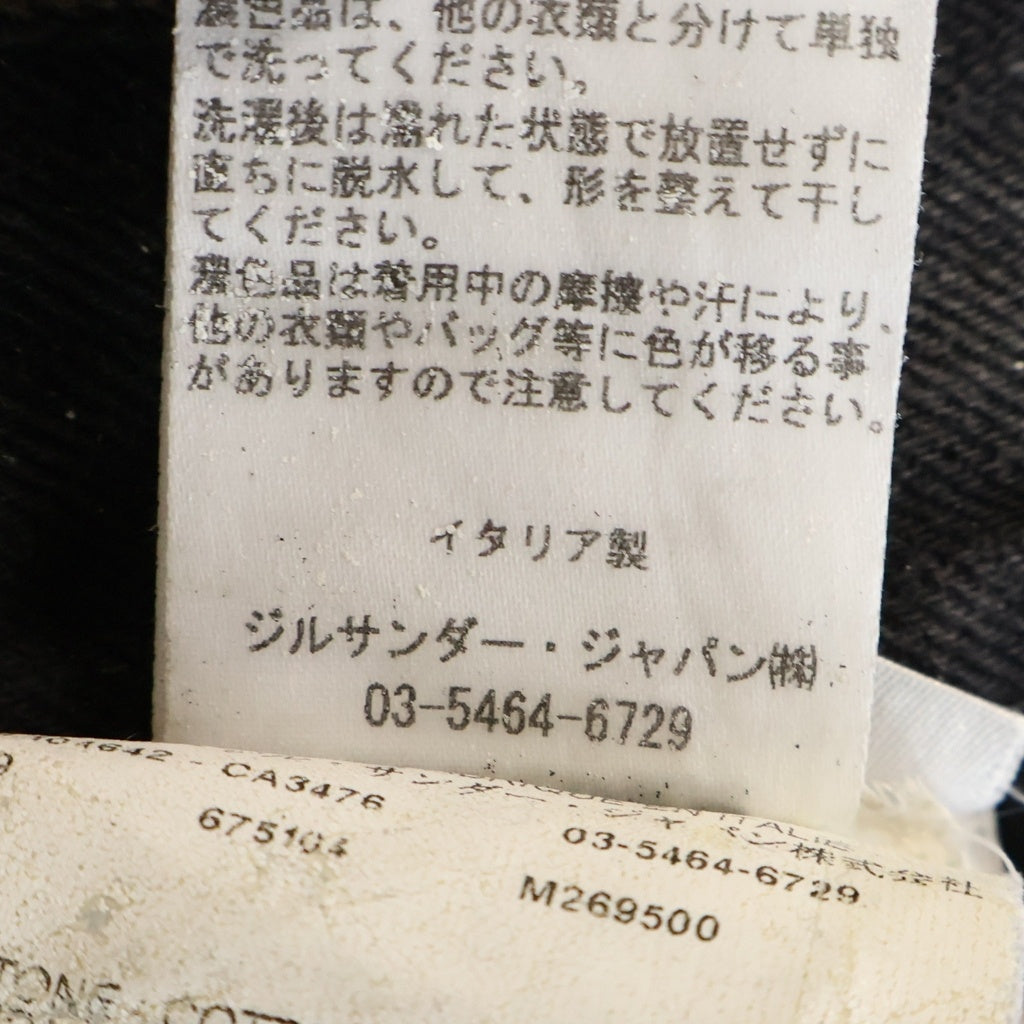 濃色品は、他の衣類と分けて単独
で洗ってください。
洗濯後は濡れた状態で放置せずに
直ちに脱水して、形を整えて干し
てください。
濃色品は着用中の摩擦や汗により、
他の衣類やバッグ等に色が移る事
がありますので注意してください。
イタリア製
ジルサンダー・ジャパン㈱
03-5464-6729
CA3476
サンダー・ジャパン株式会社
675104
03-5464-6729
M269500